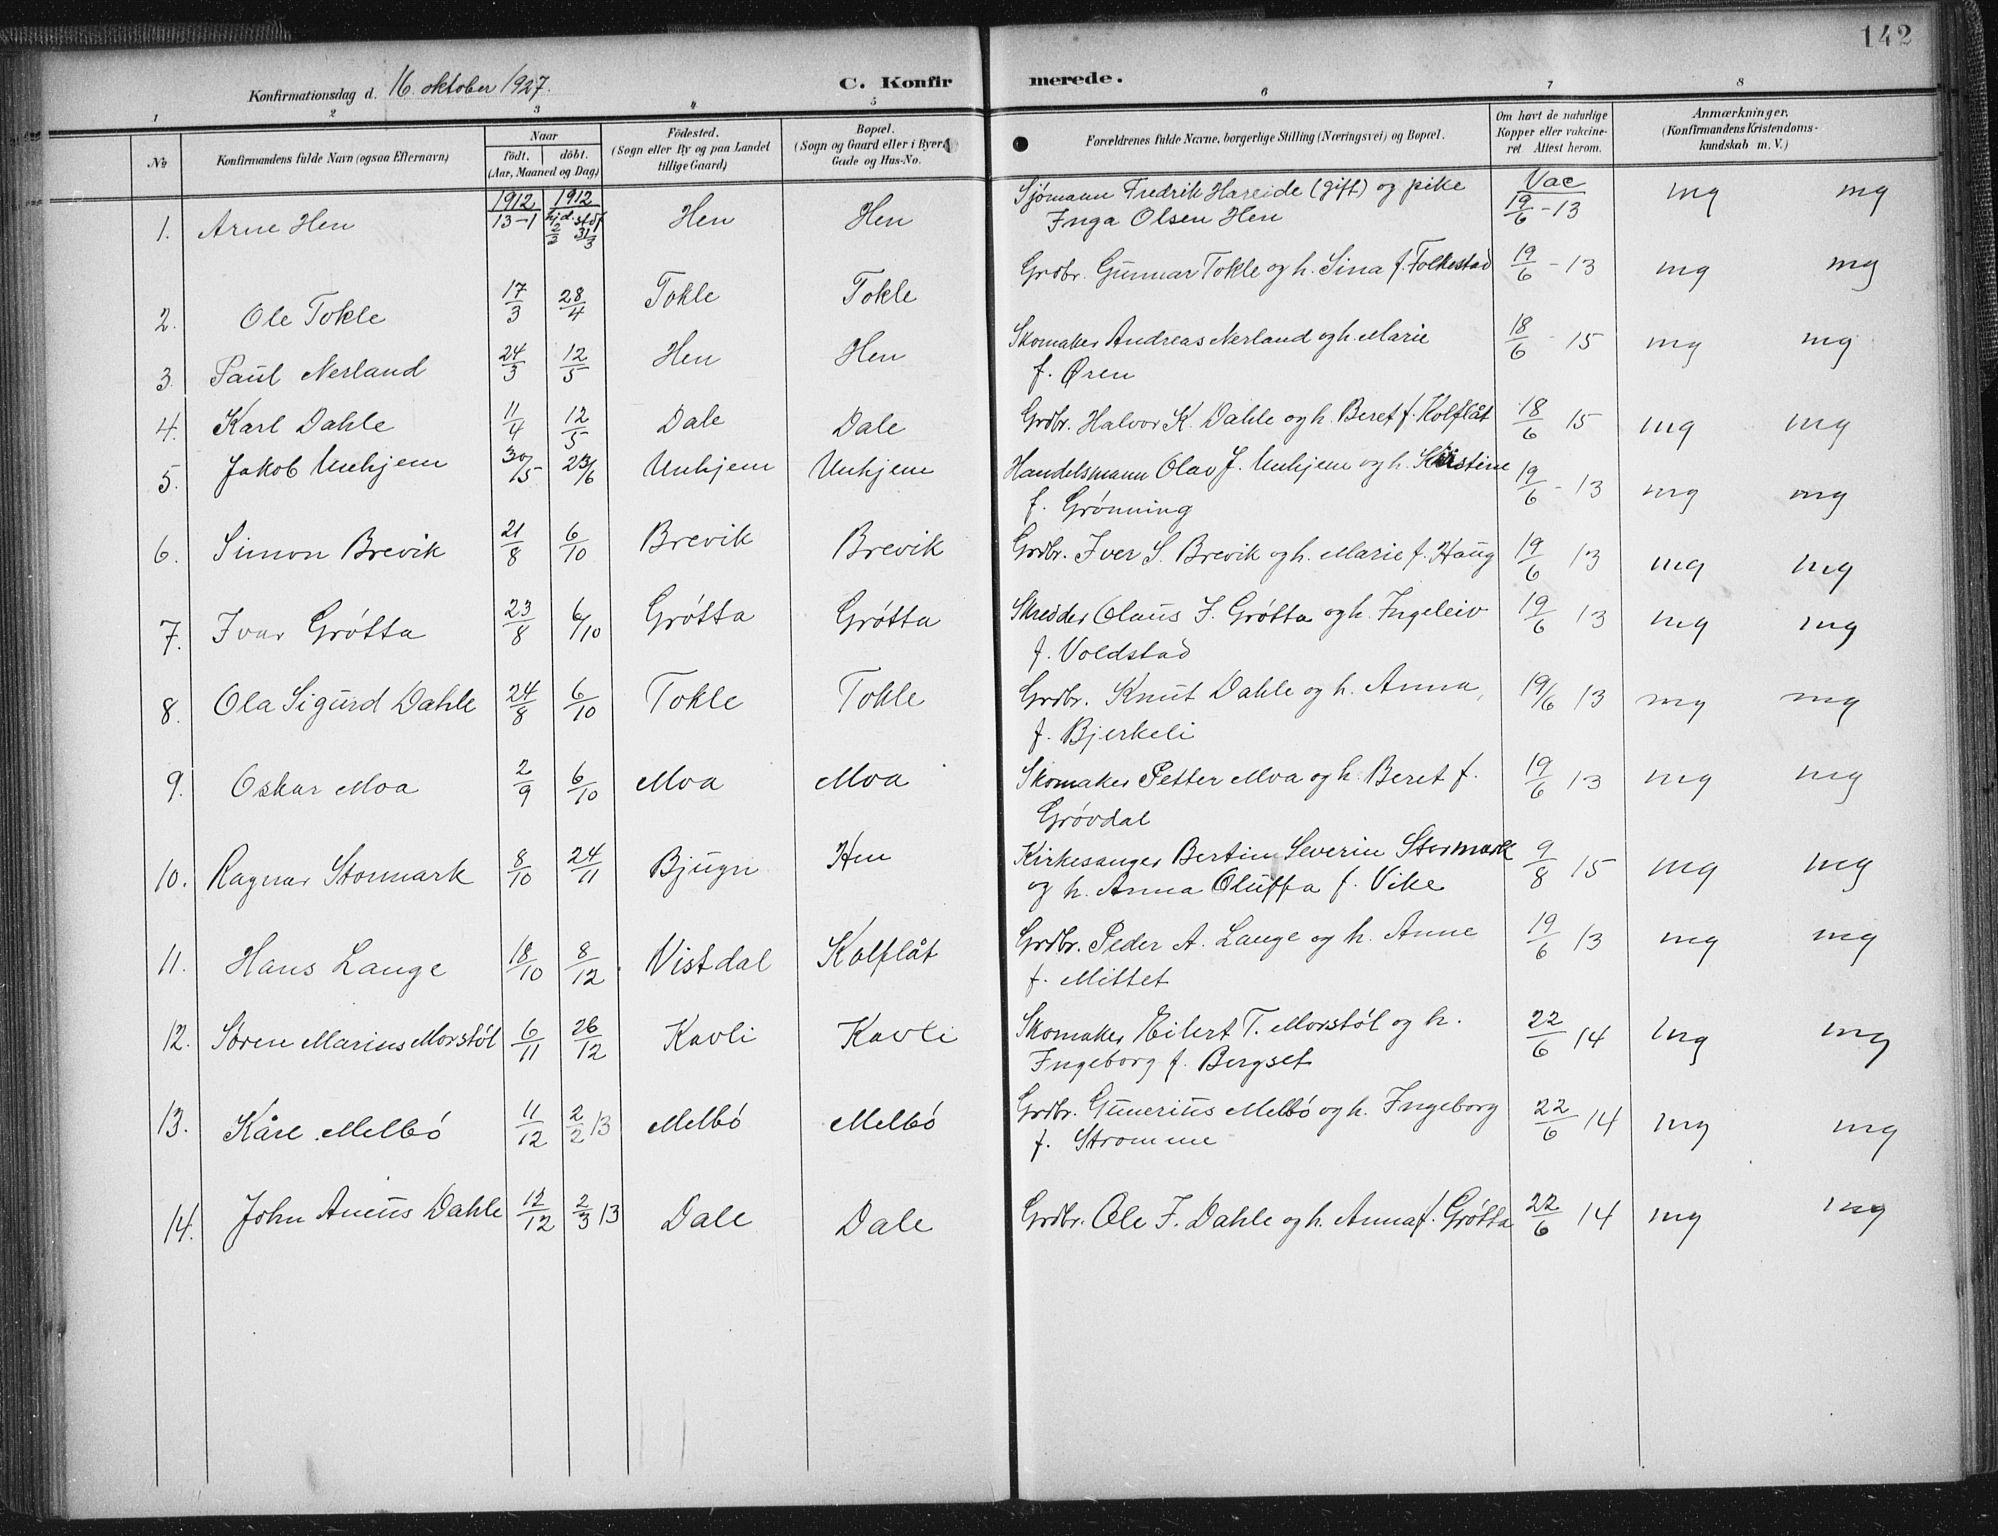 142
Konfirmationsdag d. 16. oktober 1927.
C. Konfirmerede.
1 2 3 4 5 6 7 8
No
Konfirmandens fulde Navn (ogsaa Efternavn)
Naar
født. døbt.
(Aar, Maaned og Dag)
Fødested.
(Sogn eller By og paa Landet
tillige Gaard)
Bopæl.
(Sogn og Gaard eller i Byer,
Gade og Hus-No.
Forældrenes fulde Navne, borgerlige Stilling (Næringsvei) og Bopæl.
Om havt de naturlige
Kopper eller vakcine-
ret. Attest herom.
Anmærkninger.
(Konfirmandens Kristendoms-
kundskab m. V.)
1912 1912 Vac
1. Arne Hen 13-1 hjd. 2/2 stdf. 31/3 Hen Hen Sjømann Fredrik Hareide (gift) og pike 19/6 - 13 mg mg
Inga Olsen Hen
2. Ole Tokle 17/3 28/4 Tokle Tokle Grdbr. Gunnar Tokle og h. Sina f. Folkestad 19/6 - 13 mg mg
3. Paul Nerland 24/3 12/5 Hen Hen Skomaker Andreas Nerland og h. Marie 18/6 - 15 mg mg
f. Øren
4. Karl Dahle 11/4 12/5 Dale Dale Grdbr. Halvor K. Dahle og h. Beret f. Kolflåt 18/6 15 mg mg
5. Jakob Unhjem 30/5 23/6 Unhjem Unhjem Handelsmann Olav J. Unhjem og h. Kristine 19/6 - 13 mg mg
f. Grønning
6. Simon Brevik 21/8 6/10 Brevik Brevik Grdbr. Iver S. Brevik og h. Marie f. Haug 19/6 13 mg mg
7. Ivar Grøtta 23/8 6/10 Grøtta Grøtta Skredder Olaus I. Grøtta og h. Ingeleiv 19/6 13 mg mg
f. Voldstad
8. Ola Sigurd Dahle 24/8 6/10 Tokle Tokle Grdbr. Knut Dahle og h. Anna, 19/6 13 mg mg
f. Bjerkeli
9. Oskar Moa 2/9 6/10 Moa Moa Skomaker Petter Moa og h. Beret f. 19/6 13 mg mg
Grøvdal
10. Ragnar Stormark 8/10 24/11 Bjugn Hen Kirkesanger Bertin Severin Stormark 9/8 15 mg mg
og h. Anna Oluffa f. Vike
11. Hans Lange 18/10 8/12 Vistdal Kolflåt Grdbr. Peder A. Lange og h. Anne 19/6 13 mg mg
f. Mittet
12. Søren Marius Morstøl 6/11 26/12 Kavli Kavli Skomaker Eilert T. Morstøl og h. 22/6 14 mg mg
Ingeborg f. Bergset
13. Kåre Melbø 11/12 2/2 13 Melbø Melbø Grdbr. Gunerius Melbø og h. Ingeborg 22/6 14 mg mg
f. Strømme
14. John Aneus Dahle 12/12 2/3 13 Dale Dale Grdbr. Ole F. Dahle og h. Anna f. Grøtta 22/6 14 mg mg